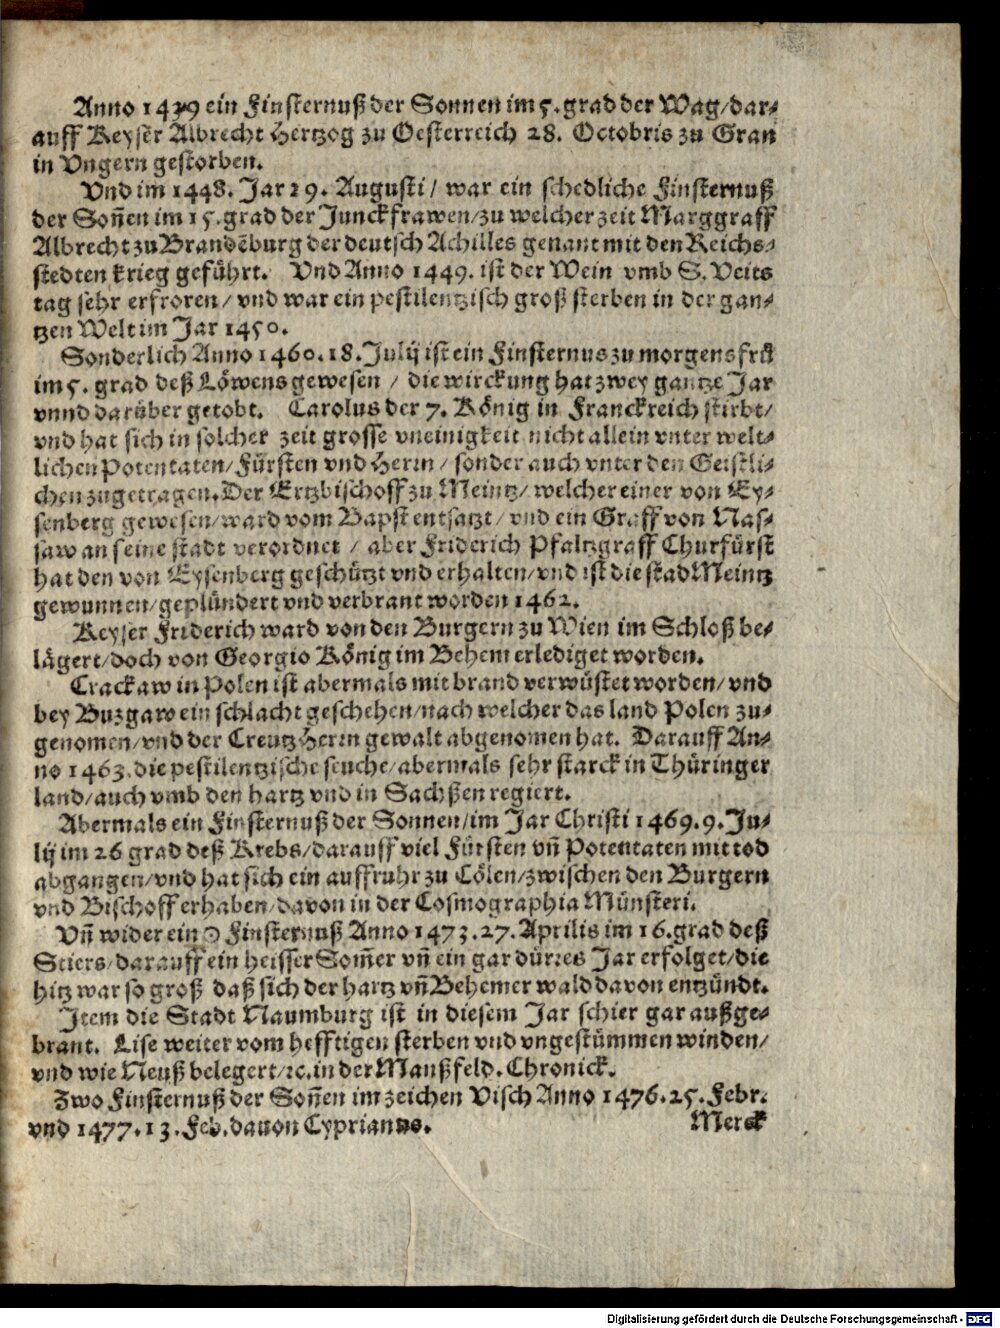 Anno 1439 ein Finsternuß der Sonnen im 5. grad der Wag/dar⸗
auff Keyser Albrecht Hertzog zu Oesterreich 28. Octobris zu Gran
in Vngern gestorben.
Vnd im 1448. Jar 29. Augusti/ war ein schedliche Finsternuß
der Soñen im 15. grad der Junckfrawen/zu welcher zeit Marggraff
Albrecht zu Brandẽburg der deutsch Achilles genant mit den Reichs⸗
stedten krieg geführt. Vnd Anno 1449. ist der Wein vmb S. Veits
tag sehr erfroren/ vnd war ein pestilentzisch groß sterben in der gan⸗
tzen Welt im Jar 1450.
Sonderlich Anno 1460. 18. Julij ist ein Finsternus zu morgens frü
im 5. grad deß Löwens gewesen / die wirckung hat zwey gantze Jar
vnnd darüber getobt. Carolus der 7. König in Franckreich stirbt/
vnd hat sich in solcher zeit grosse vneinigkeit nicht allein vnter welt⸗
lichen Potentaten/Fürsten vnd Herrn / sonder auch vnter den Geistli⸗
chen zugetragen. Der Ertzbischoff zu Meintz/ welcher einer von Ey⸗
senberg gewesen/ward vom Bapst entsatzt/ vnd ein Graff von Nas⸗
saw an seine stadt verordnet / aber Friderich Pfaltzgraff Churfürst
hat den von Eysenberg geschützt vnd erhalten/vnd ist die stad Meintz
gewunnen/geplündert vnd verbrant worden 1462.
Keyser Friderich ward von den Burgern zu Wien im Schloß be⸗
lägert/doch von Georgio König im Behem erlediget worden.
Crackaw in Polen ist abermals mit brand verwüstet worden/ vnd
bey Buzgaw ein schlacht geschehen/nach welcher das land Polen zu⸗
genomen/vnd der Creutz Herrn gewalt abgenomen hat. Darauff An⸗
no 1463. die pestilentzische seuche/abermals sehr starck in Thüringer
land/auch vmb den hartz vnd in Sachßen regiert.
Abermals ein Finsternuß der Sonnen/im Jar Christi 1469. 9. Ju⸗
lij im 26 grad deß Krebs/darauff viel Fürsten vñ Potentaten mit tod
abgangen/vnd hat sich ein auffruhr zu Cölen/zwischen den Burgern
vnd Bischoff erhaben/davon in der Cosmographia Münsteri.
Vñ wider ein Finsternuß Anno 1473. 27. Aprilis im 16. grad deß
Stiers/darauff ein heisser Som̃er vñ ein gar dürres Jar erfolget/die
hitz war so groß daß sich der hartz vñ Behemer wald davon entzündt.
Item die Stadt Naumburg ist in diesem Jar schier gar außge⸗
brant. Lise weiter vom hefftigen sterben vnd vngestümmen winden/
vnd wie Neuß belegert/ꝛc. in der Manßfeld. Chronick.
Zwo Finsternuß der Soñen im zeichen Visch Anno 1476. 25. Febr.
vnd 1477. 13. Feb. dauon Cyprianus. Merck
Digitalisierung gefördert durch die Deutsche Forschungsgemeinschaft - DFG